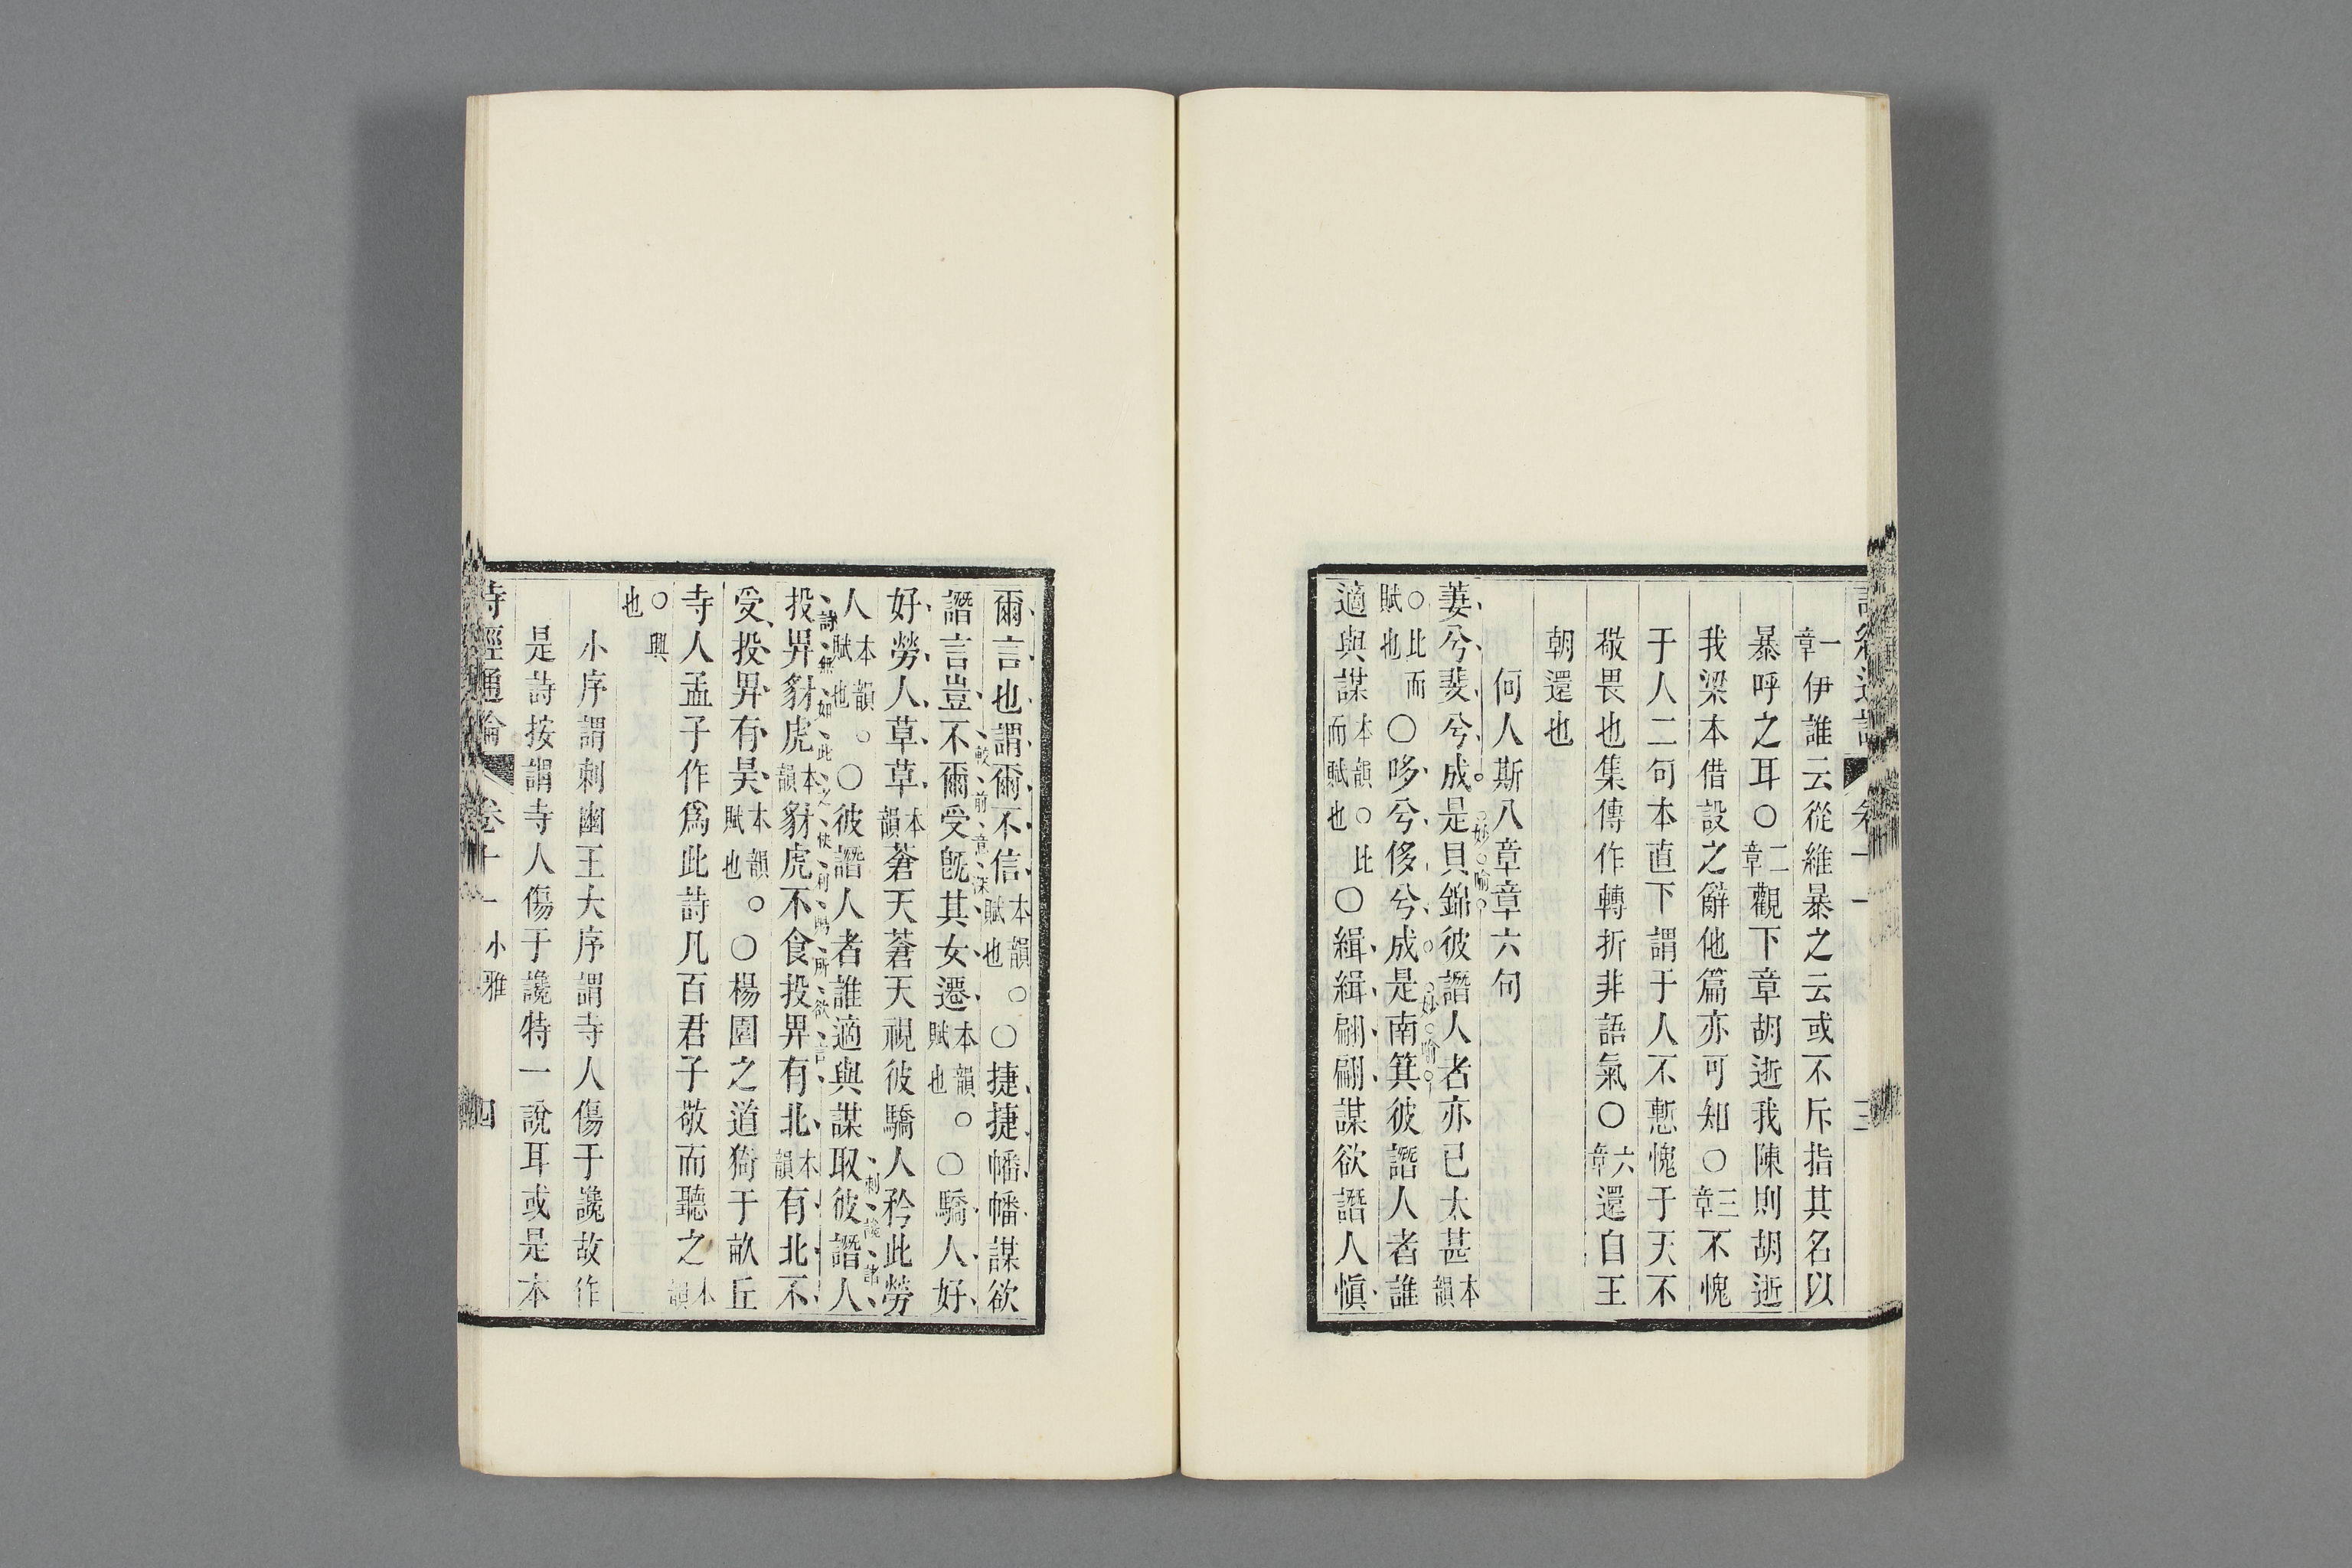 一章伊誰云從維暴之云或不斥指其名以
暴呼之耳○二章觀下章胡逝我陳則胡逝
我梁本借設之辭他篇亦可知○三章不愧
于人二句本直下謂于人不慙愧于天不
敬畏也集傳作轉折非語氣○六章還自王
朝還也
何人斯八章章六句
萋兮斐兮成是貝錦彼譖人者亦已太甚本韻
妙喻
○比而賦也○哆兮侈兮成是南箕彼譖人者誰
妙喻
適與謀本韻○比而賦也○緝緝翩翩謀欲譖人愼
爾言也謂爾不信本韻○賦也○捷捷幡幡謀欲
較前章深
譖言豈不爾受旣其女遷本韻○賦也○驕人好
好勞人草草本韻蒼天蒼天視彼驕人矜此勞
人本韻○賦也○彼譖人者誰適與謀取彼譖人
投畀豺虎本韻豺虎不食投畀有北本韻有北不
受投畀有昊本韻○賦也○楊園之道猗于畝丘
寺人孟子作爲此詩凡百君子敬而聽之本韻
○興也
小序謂刺幽王大序謂寺人傷于讒故作
是詩按謂寺人傷于讒特一說耳或是本
詩經通論 卷十一 小雅 四